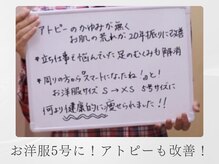 アトピーのかゆみが無く
お肌の荒れが20年振りに改善
*立ち仕事で悩んでいた足のむくみも解消
*周りの方から"スマートになったね"と!
お洋服サイズ S→XS 5号サイズに
何より健康的に痩せられました!!
お洋服5号に!アトピーも改善!